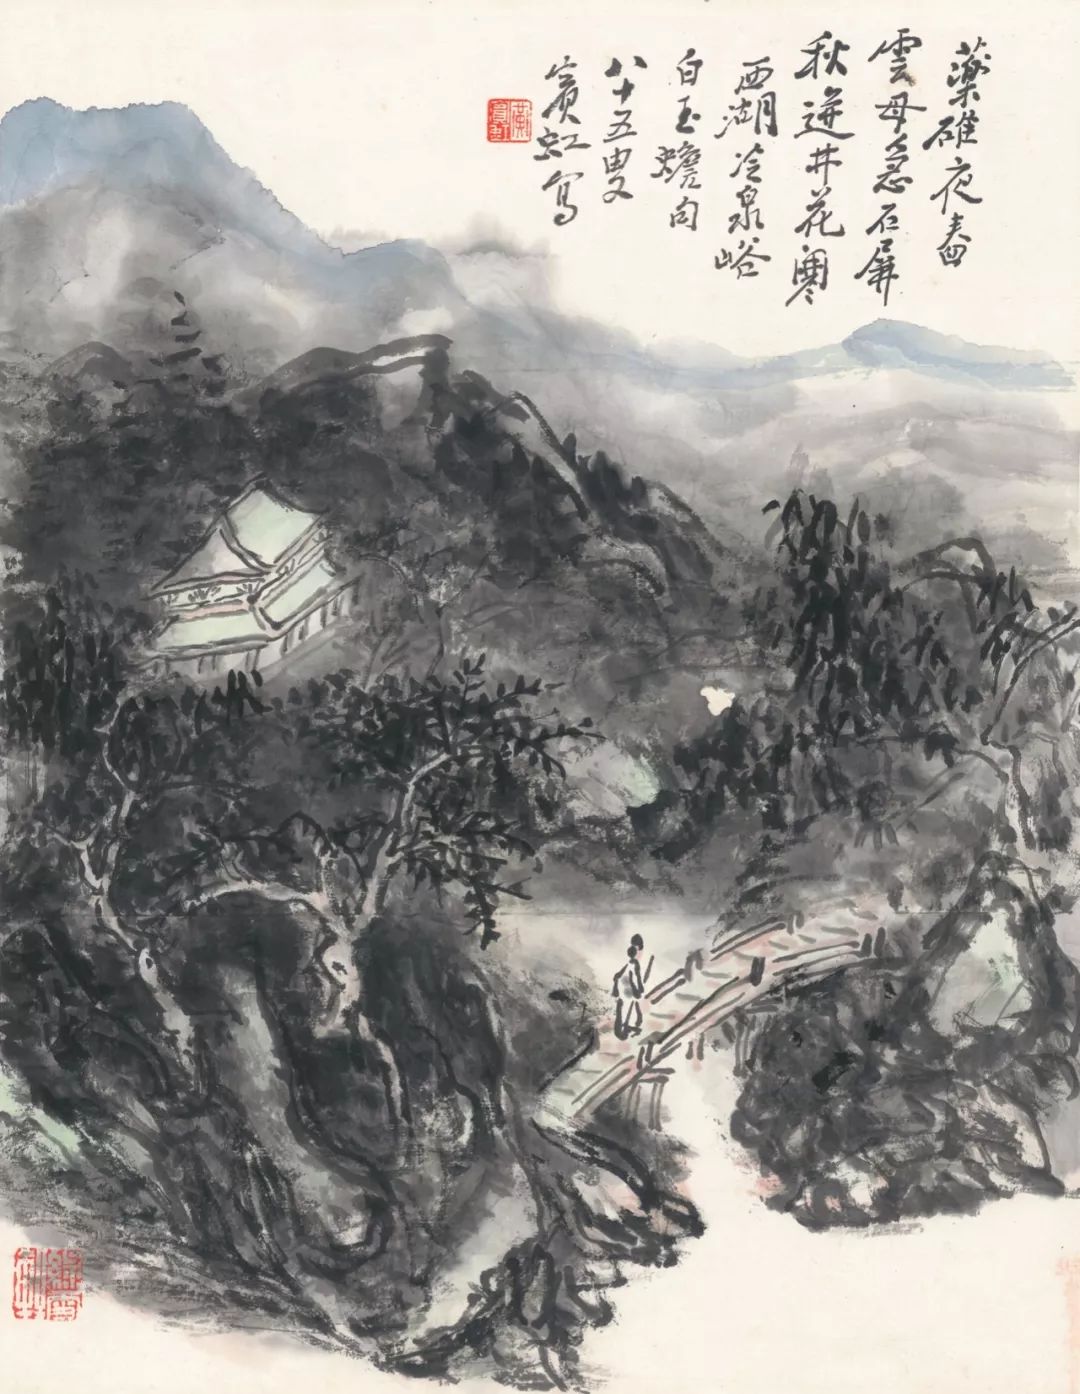 藥碓夜舂
雲母急石屏
秋迸井花寒
西湖冷泉峪
白玉蟾句
八十五叟
賓虹寫
黃賓虹